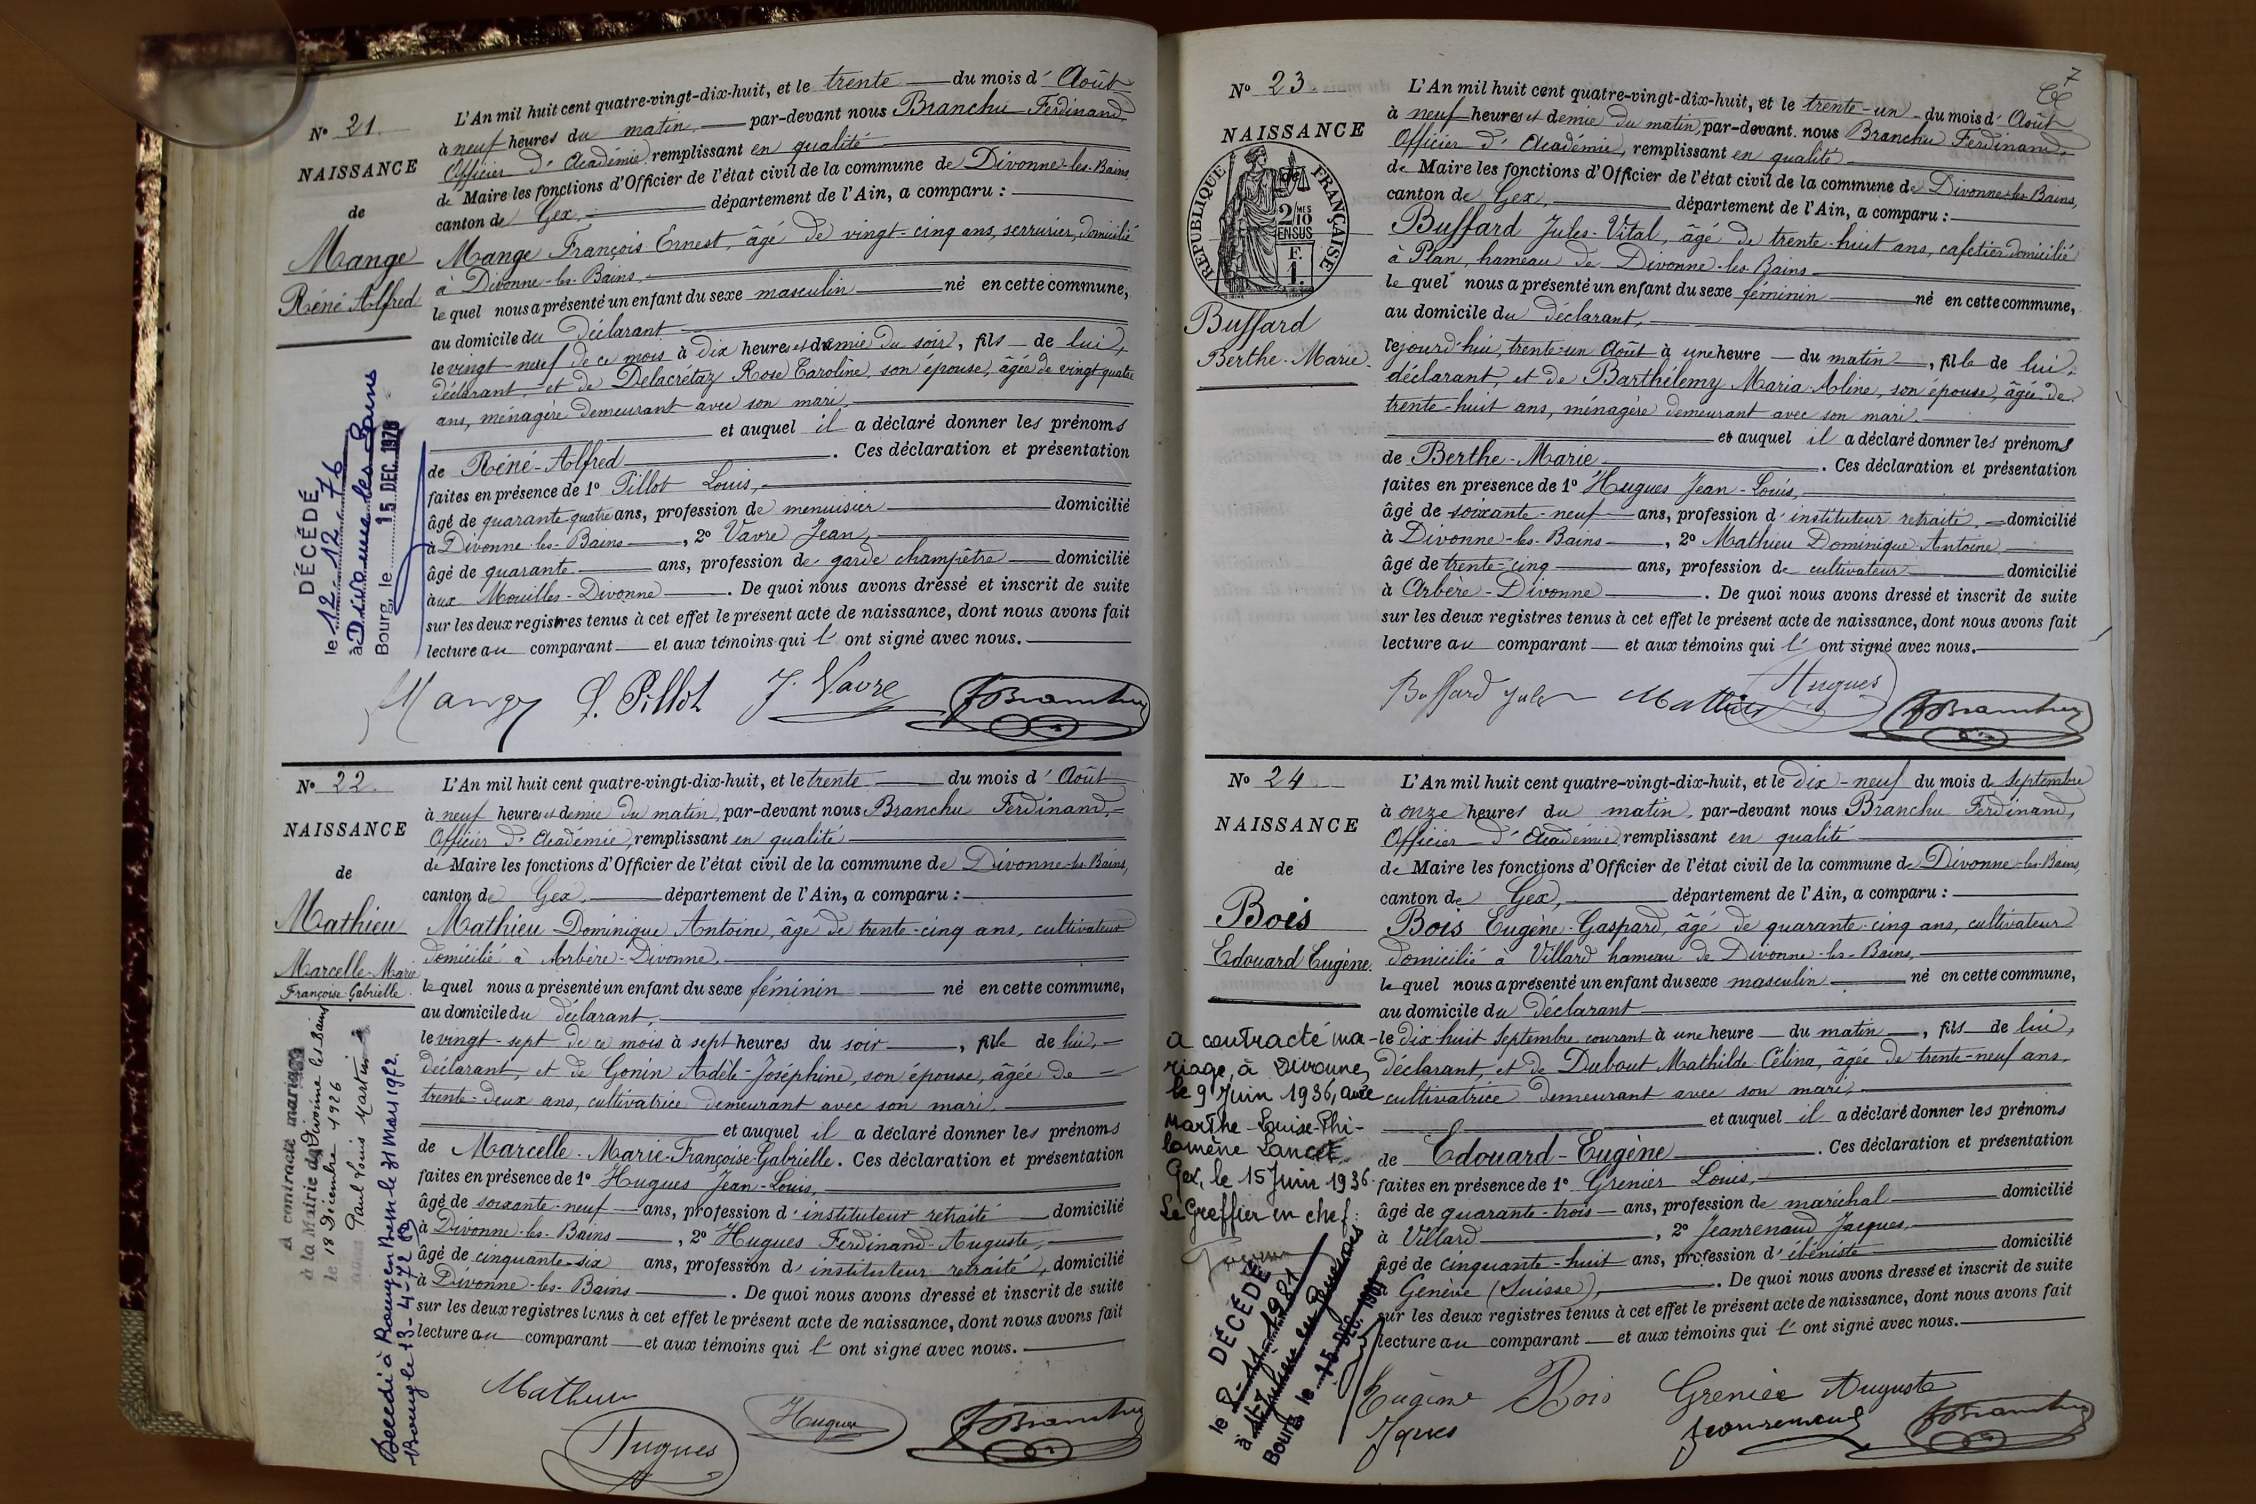 N° 21
NAISSANCE
de
Mange
Réné Alfred
L'An mil huit cent quatre-vingt-dix-huit, et le trente du mois d'Août
à neuf heures du matin, par-devant nous Branchu Ferdinand,
Officier d'Académie, remplissant en qualité
de Maire les fonctions d'Officier de l'état civil de la commune de Divonne-les-Bains,
canton de Gex, département de l'Ain, a comparu :
Mange François Ernest, âgé de vingt-cinq ans, serrurier, domicilié
à Divonne-les-Bains,
lequel nous a présenté un enfant du sexe masculin né en cette commune,
au domicile du déclarant
le vingt-neuf de ce mois à dix heures et demie du soir, fils de lui,
déclarant, et de Delacrétaz Rose Caroline, son épouse, âgée de vingt quatre
ans, ménagère demeurant avec son mari,
et auquel il a déclaré donner les prénoms
de Réné-Alfred. Ces déclaration et présentation
faites en présence de 1° Pillot Louis,
âgé de quarante-quatre ans, profession de menuisier domicilié
à Divonne-les-Bains, 2° Vavre Jean,
âgé de quarante ans, profession de garde champêtre domicilié
aux Mouilles-Divonne. De quoi nous avons dressé et inscrit de suite
sur les deux registres tenus à cet effet le présent acte de naissance, dont nous avons fait
lecture au comparant et aux témoins qui l'ont signé avec nous.
DÉCÉDÉ
le 12.12.76
à Divonne les Bains
Bourg, le 15 DEC. 1976
Mange L. Pillot J. Vavre F Branchu
N° 22
NAISSANCE
de
Mathieu
Marcelle-Marie
Françoise-Gabrielle
L'An mil huit cent quatre-vingt-dix-huit, et le trente du mois d'Août
à neuf heures et demie du matin, par-devant nous Branchu Ferdinand,
Officier d'Académie, remplissant en qualité
de Maire les fonctions d'Officier de l'état civil de la commune de Divonne-les-Bains,
canton de Gex, département de l'Ain, a comparu :
Mathieu Dominique Antoine, âgé de trente-cinq ans, cultivateur
domicilié à Arbère-Divonne,
lequel nous a présenté un enfant du sexe féminin né en cette commune,
au domicile du déclarant,
le vingt-sept de ce mois à sept heures du soir, fille de lui,
déclarant, et de Gonin Adèle-Joséphine, son épouse, âgée de
trente-deux ans, cultivatrice demeurant avec son mari,
et auquel il a déclaré donner les prénoms
de Marcelle-Marie-Françoise-Gabrielle. Ces déclaration et présentation
faites en présence de 1° Hugues Jean-Louis,
âgé de soixante-neuf ans, profession d'instituteur retraité domicilié
à Divonne-les-Bains, 2° Hugues Ferdinand-Auguste,
âgé de cinquante-six ans, profession d'instituteur retraité, domicilié
à Divonne-les-Bains. De quoi nous avons dressé et inscrit de suite
sur les deux registres tenus à cet effet le présent acte de naissance, dont nous avons fait
lecture au comparant et aux témoins qui l'ont signé avec nous.
A contracté mariage
à la Mairie de Divonne les Bains
le 18 Decembre 1926
Paul Louis Martin
Decedé à le 31 Mars 1972.
Bourg le 13-4-72
Mathieu
Hugues Hugues F Branchu
7
N° 23
NAISSANCE
de
RÉPUBLIQUE FRANÇAISE
2/10 MES
EN SUS
F.
1.
Buffard
Berthe-Marie
L'An mil huit cent quatre-vingt-dix-huit, et le trente-un du mois d'Août
à neuf heures et demie du matin, par-devant nous Branchu Ferdinand,
Officier d'Académie, remplissant en qualité
de Maire les fonctions d'Officier de l'état civil de la commune de Divonne-les-Bains,
canton de Gex, département de l'Ain, a comparu :
Buffard Jules-Vital, âgé de trente-huit ans, cafetier domicilié
à Plan, hameau de Divonne-les-Bains
lequel nous a présenté un enfant du sexe féminin né en cette commune,
au domicile du déclarant,
cejourd'hui, trente-un Août à une heure du matin, fille de lui,
déclarant, et de Barthélemy Maria-Aline, son épouse, âgée de
trente-huit ans, ménagère demeurant avec son mari,
et auquel il a déclaré donner les prénoms
de Berthe-Marie. Ces déclaration et présentation
faites en présence de 1° Hugues Jean-Louis,
âgé de soixante-neuf ans, profession d'instituteur retraité, domicilié
à Divonne-les-Bains, 2° Mathieu Dominique Antoine,
âgé de trente-cinq ans, profession de cultivateur domicilié
à Arbère-Divonne. De quoi nous avons dressé et inscrit de suite
sur les deux registres tenus à cet effet le présent acte de naissance, dont nous avons fait
lecture au comparant et aux témoins qui l'ont signé avec nous.
Buffard Jules Mathieu Hugues F Branchu
N° 24
NAISSANCE
de
Bois
Edouard Eugène
L'An mil huit cent quatre-vingt-dix-huit, et le dix-neuf du mois de septembre
à onze heures du matin, par-devant nous Branchu Ferdinand,
Officier d'Académie, remplissant en qualité
de Maire les fonctions d'Officier de l'état civil de la commune de Divonne-les-Bains,
canton de Gex, département de l'Ain, a comparu :
Bois Eugène-Gaspard, âgé de quarante-cinq ans, cultivateur
domicilié à Villard hameau de Divonne-les-Bains,
lequel nous a présenté un enfant du sexe masculin né en cette commune,
au domicile du déclarant
le dix-huit Septembre courant à une heure du matin, fils de lui,
déclarant, et de Dubout Mathilde-Célina, âgée de trente-neuf ans,
cultivatrice demeurant avec son mari,
et auquel il a déclaré donner les prénoms
de Edouard-Eugène. Ces déclaration et présentation
faites en présence de 1° Grenier Louis,
âgé de quarante-trois ans, profession de maréchal domicilié
à Villard, 2° Jeanrenaud Jacques,
âgé de cinquante-huit ans, profession d'ébéniste domicilié
à Genève (Suisse), . De quoi nous avons dressé et inscrit de suite
sur les deux registres tenus à cet effet le présent acte de naissance, dont nous avons fait
lecture au comparant et aux témoins qui l'ont signé avec nous.
a contracté ma-
riage, à Divonne,
le 9 Juin 1936, avec
Marthe-Louise-Phi-
lomène Lancet
Gex, le 15 Juin 1936.
Le Greffier en chef:
DÉCÉDÉ
le 8-11-1981
à St Julien en Genevois
Bourg, le 15 DEC. 1981
Eugène Bois Grenier Auguste
Jques Jeanrenaud F Branchu